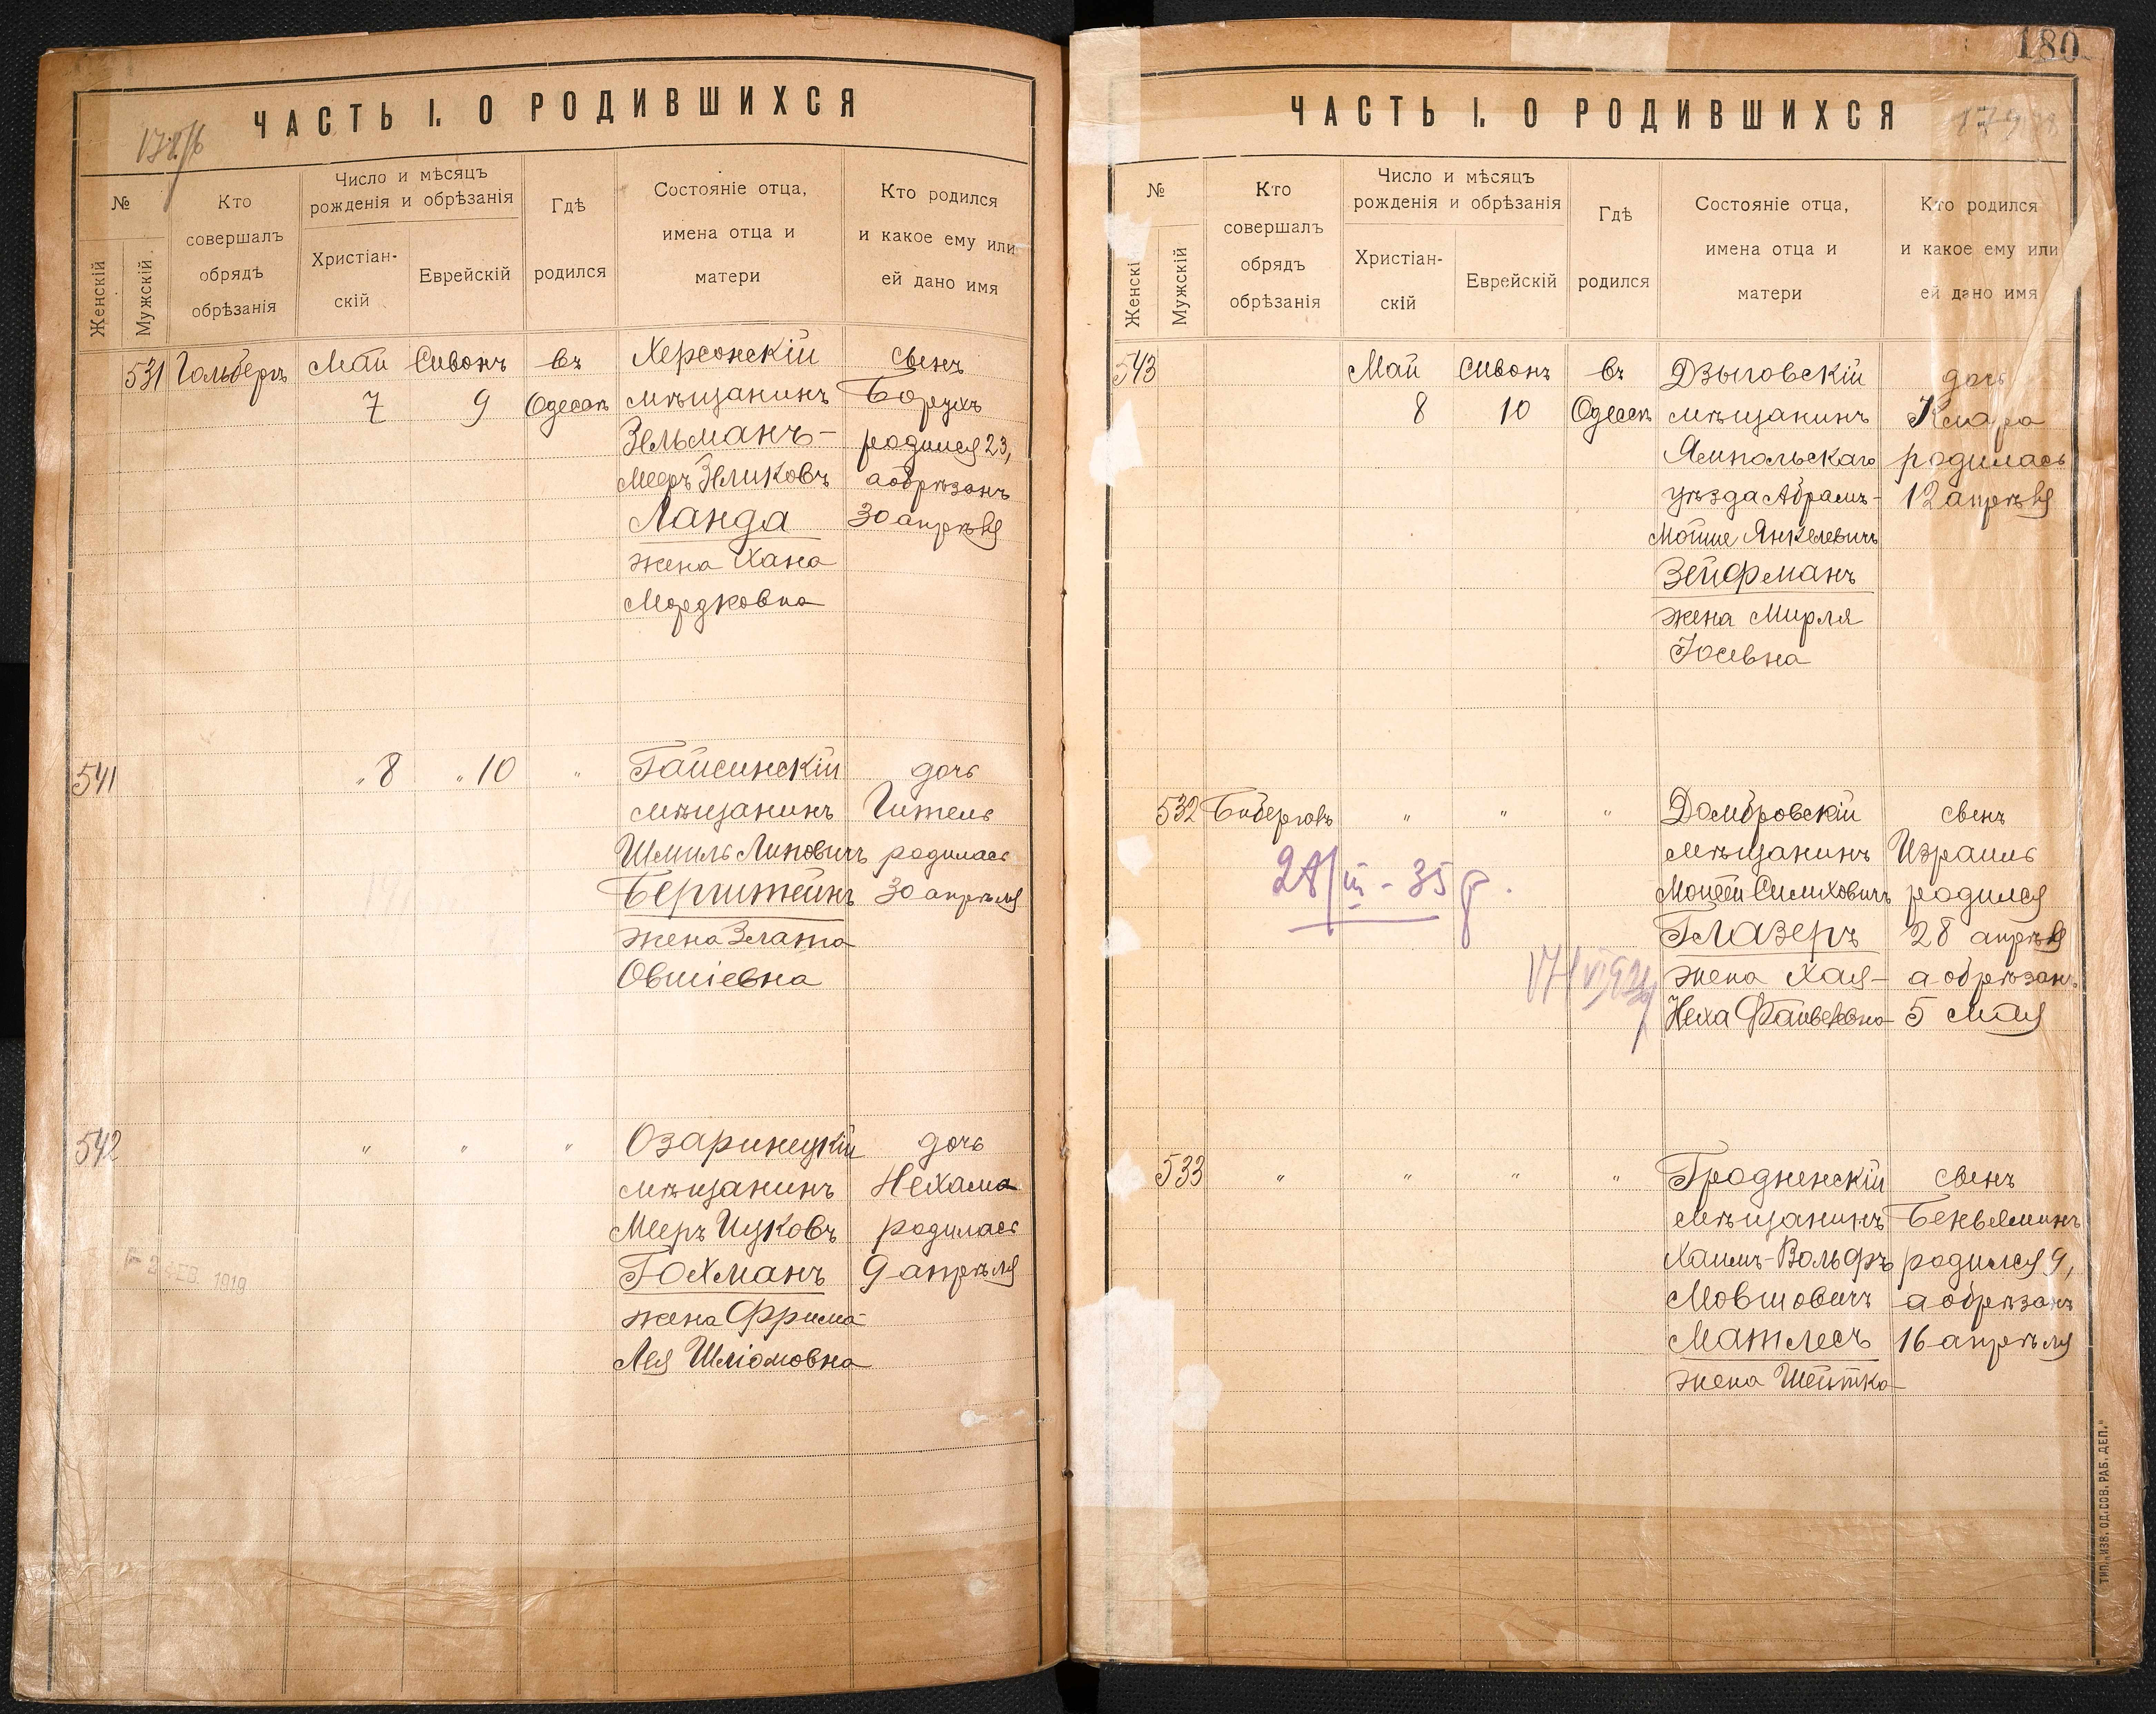 ЧАСТЬ I. О РОДИВШИХСЯ
№
Женскій
Мужскій
Кто
совершалъ
обрядъ
обрѣзанія
Число и мѣсяцъ
рожденія и обрѣзанія
Христіан-
скій
Еврейскій
Гдѣ
родился
Состояніе отца,
имена отца и
матери
Кто родился
и какое ему или
ей дано имя
531 Гольберъ Май Сивонъ въ Херсонскій свенъ
7 9 Одессѣ мѣщанинъ Борухъ
Зельманъ- родился 23,
Мееръ Зеликовъ а обрѣзанъ
Ланда 30 апрѣля
жена Хана
Мордковна
541 " 8 " 10 " Гайсинскій дочь
мѣщанинъ Гитель
Шмиль Липовичъ родилась
Бернштейнъ 30 апрѣля
жена Злата
Овшіевна
542 " " " Озаринецкій дочь
мѣщанинъ Нехама
Мееръ Ицковъ родилась
Гохманъ 9 апрѣля
жена Фрима
Лея Шліомовна
ФЕВ. 1919
180
ЧАСТЬ I. О РОДИВШИХСЯ
№
Женскі
Мужскій
Кто
совершалъ
обрядъ
обрѣзанія
Число и мѣсяцъ
рожденія и обрѣзанія
Христіан-
скій
Еврейскій
Гдѣ
родился
Состояніе отца,
имена отца и
матери
Кто родился
и какое ему или
ей дано имя
543 Май Сивонъ въ Дзыговскій дочь
8 10 Одессѣ мѣщанинъ Клара
Ямпольскаго родилась
уѣзда Абрамъ- 12 апрѣля
Мойше Янкелевичъ
Зейфманъ
жена Мирля
Іосевна
532 " " " Домбровскій свенъ
мѣщанинъ Израиль
Мойсей Симховичъ родился
28/III - 35 г. Глазеръ 28 апрѣля
жена Хая- а обрѣзанъ
Неха Файвелевна 5 мая
533 " " " " Гродненскій свенъ
мѣщанинъ Беньяминъ
Хаимъ-Вольфъ родился 9,
Мовшовичъ а обрѣзанъ
Матлесъ 16 апрѣля
жена Шейтка
ТИП. „ИЗВ. ОД. СОВ. РАБ. ДЕП."